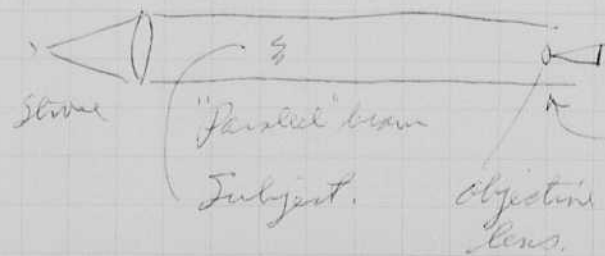 Strobe
"Parallel" beam
Subject.
Objective
lens.